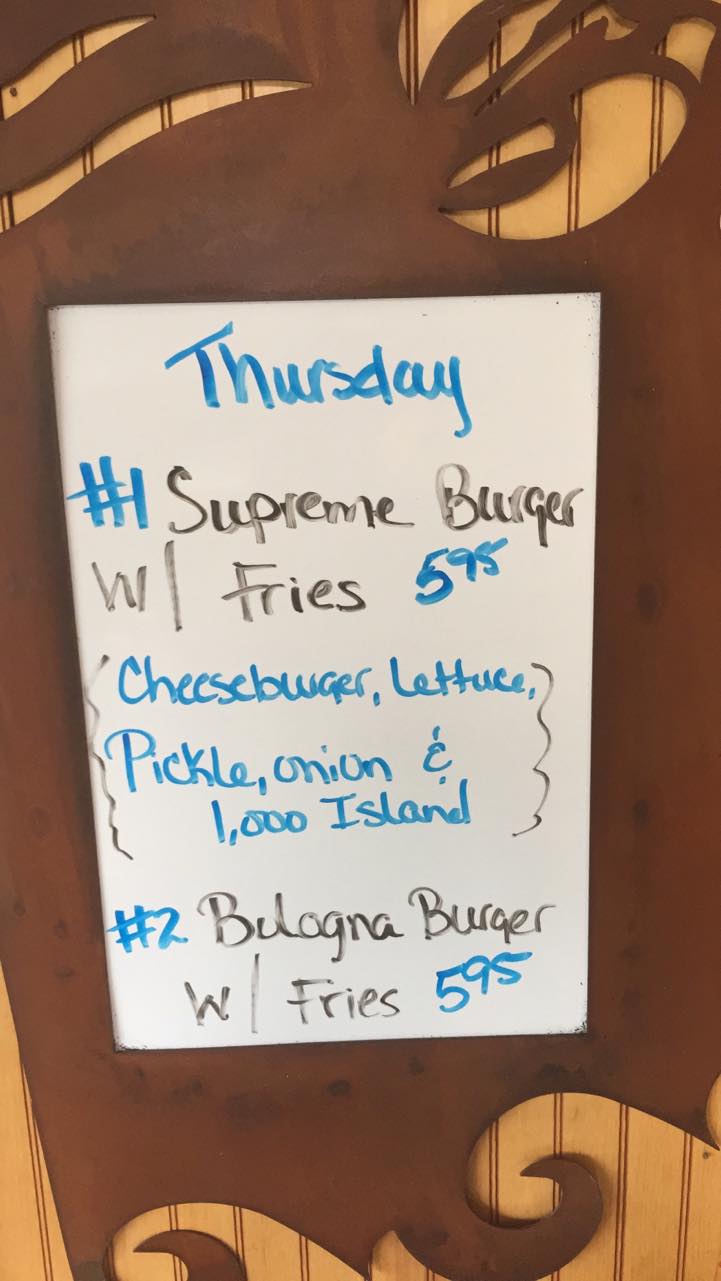 Thursday
#1 Supreme Burger
W/ Fries 5⁹⁵
(Cheeseburger, Lettuce,
Pickle, onion &
1,000 Island)
#2 Bologna Burger
W/ Fries 5⁹⁵